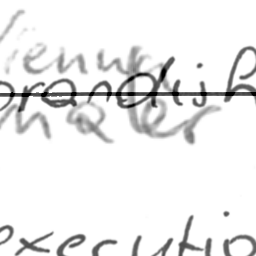 Vienna
brandish
mater
execution